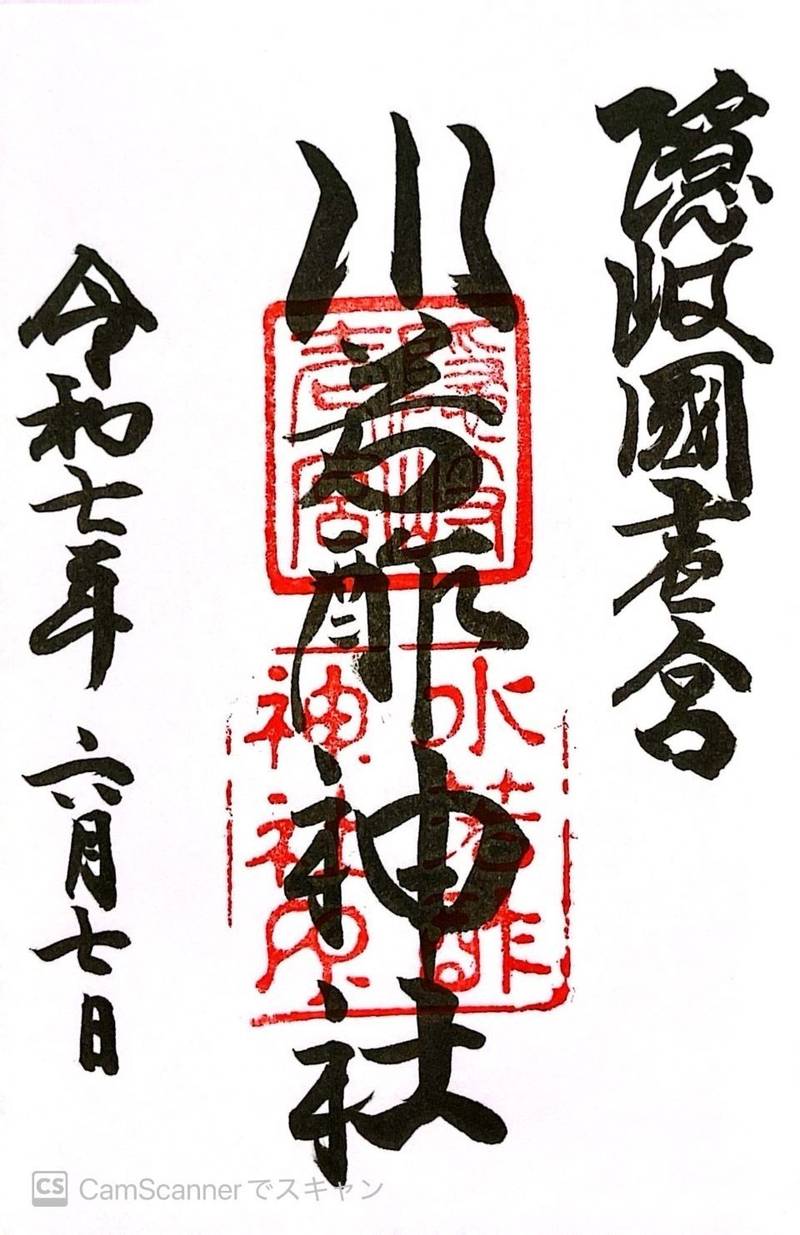 隠岐國壱宮
水若酢神社
水若酢
神社印
令和七年 六月七日
CS CamScannerでスキャン